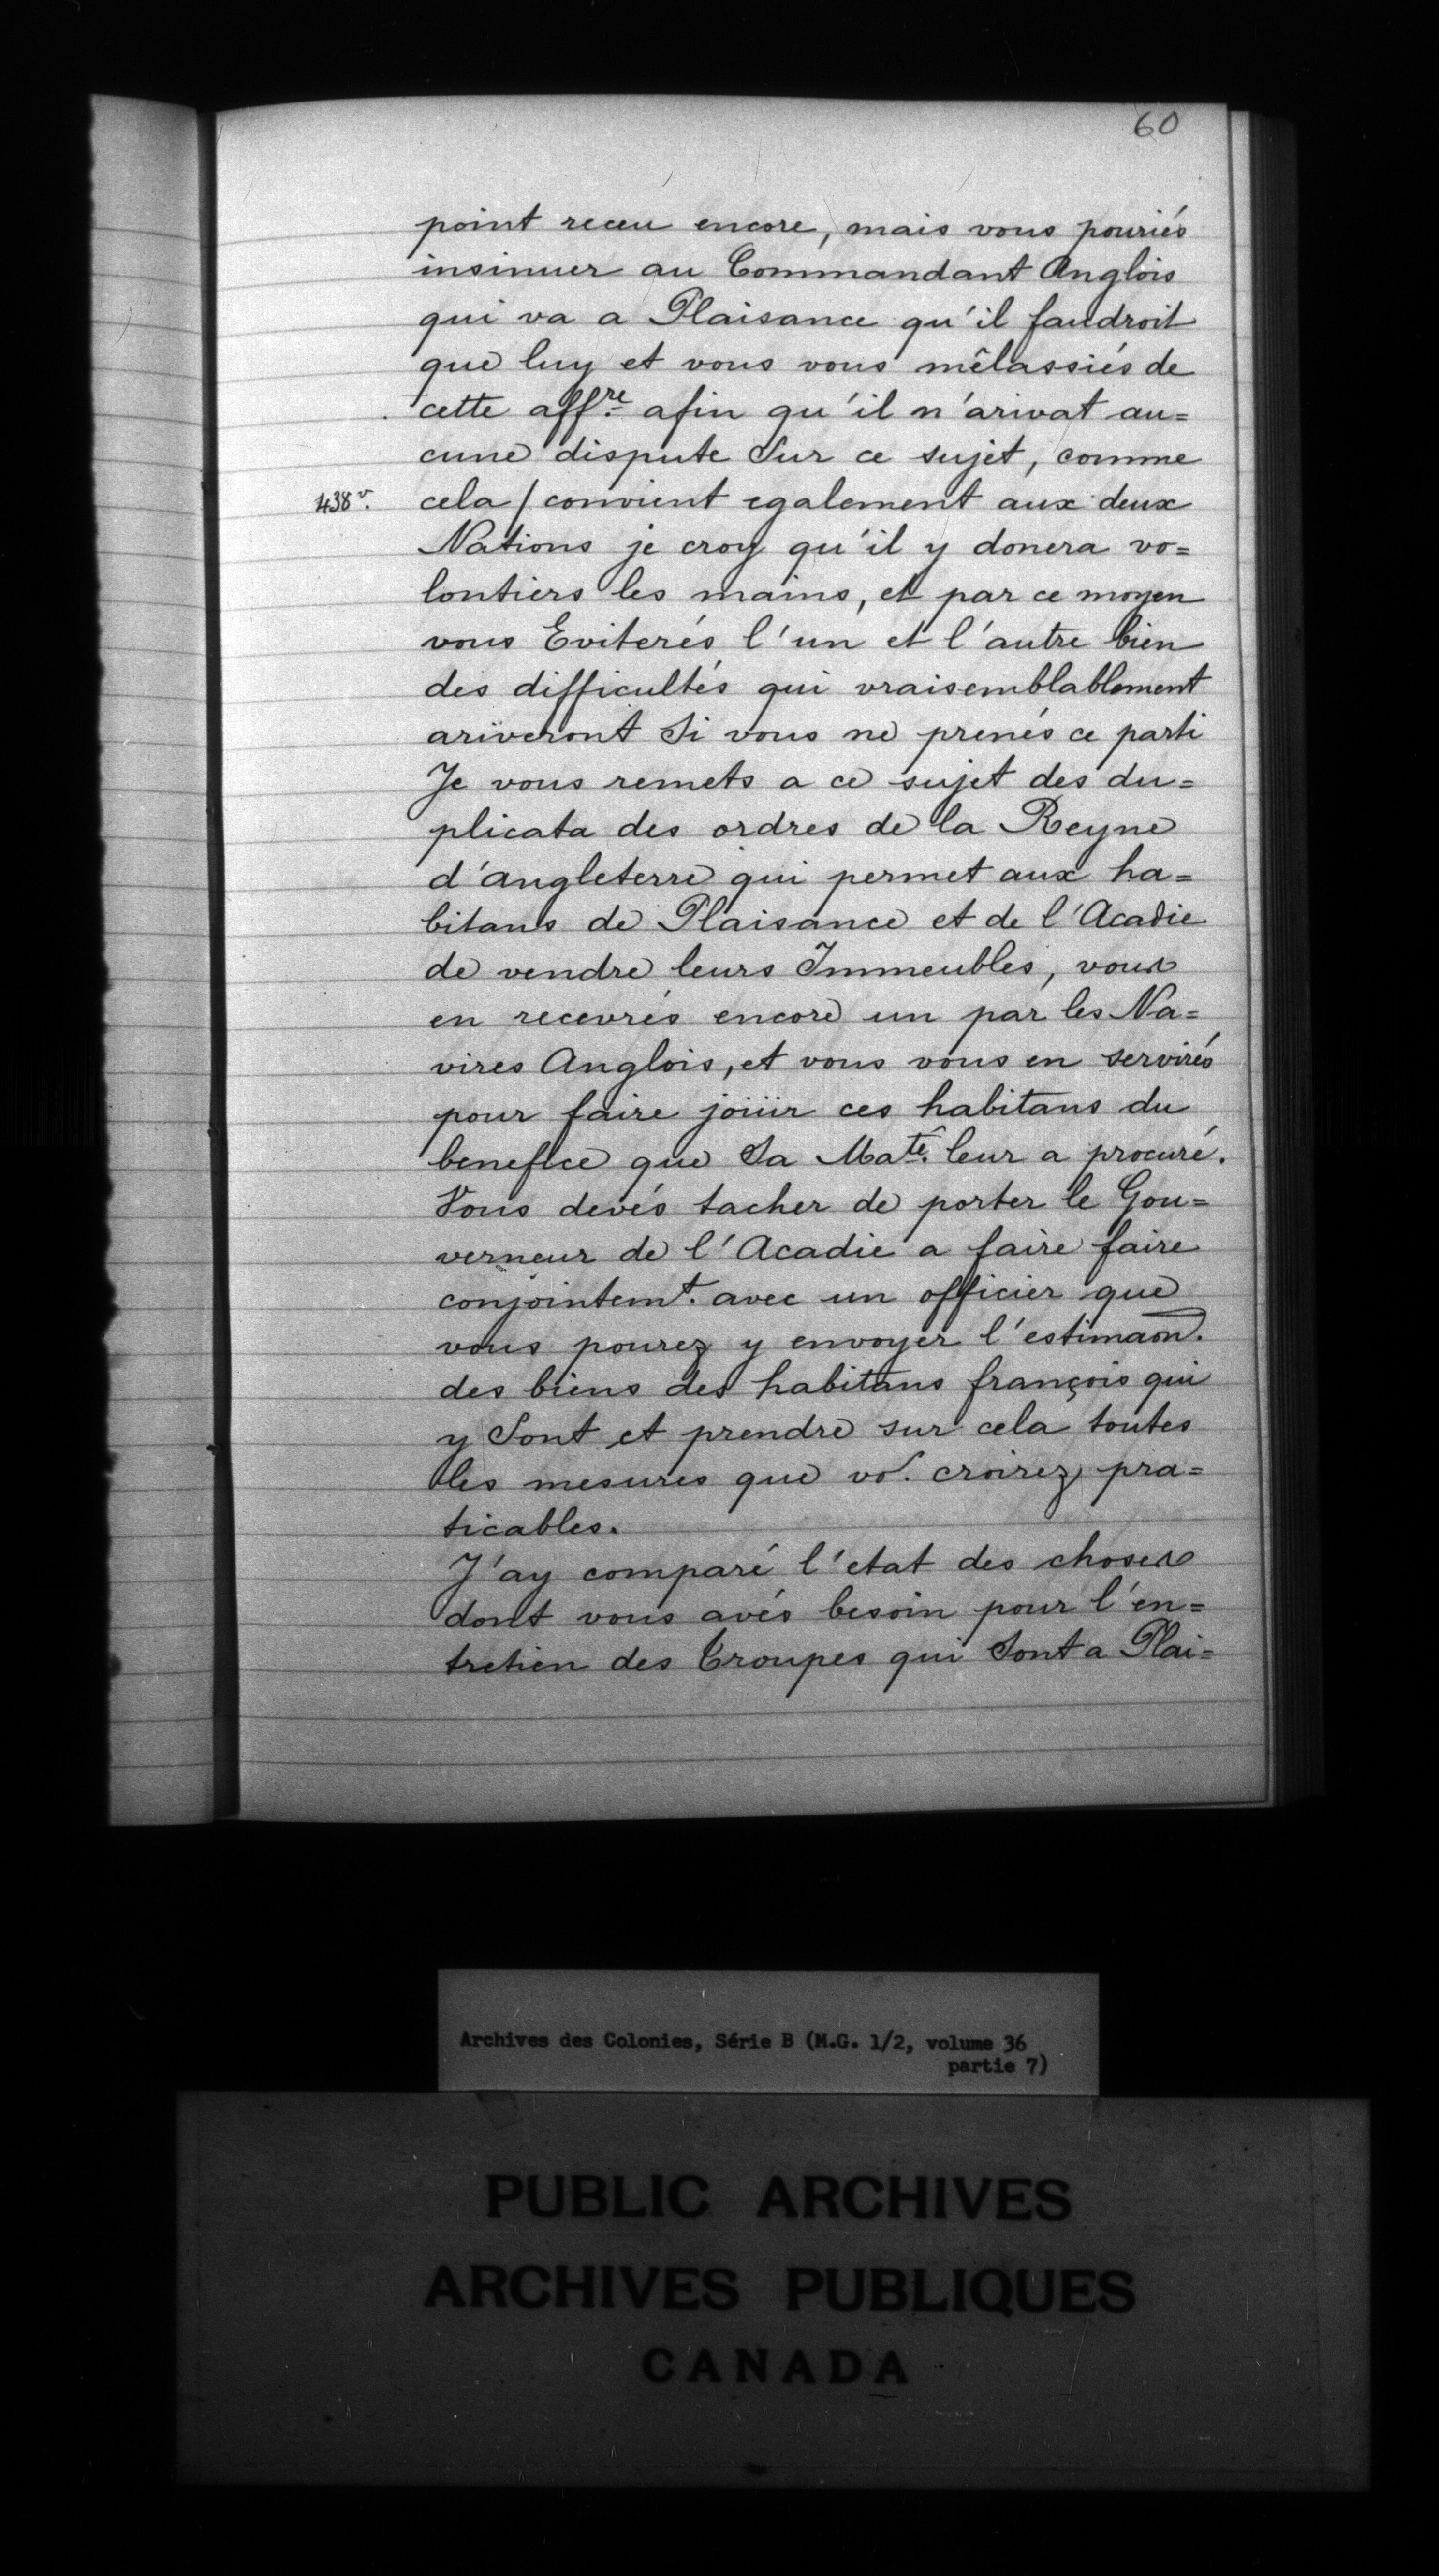 60
point receu encore, mais vous pouriés
insinuer au Commandant Anglois
qui va a Plaisance qu'il faudroit
que luy et vous vous mêlassiés de
cette affre. afin qu'il n'arivat au=
cune dispute Sur ce sujet, comme
438v. cela / convient egalement aux deux
Nations je croy qu'il y donera vo=
lontiers les mains, et par ce moyen
vous Eviterés l'un et l'autre bien
des difficultés qui vraisemblablement
ariveront Si vous ne prenés ce parti
Je vous remets a ce sujet des du=
plicata des ordres de la Reyne
d'angleterre qui permet aux ha=
bitans de Plaisance et de l'Acadie
de vendre leurs Immeubles, vous
en recevrés encore un par les Na=
vires Anglois, et vous vous en servirés
pour faire joüir ces habitans du
benefice que Sa Maté. leur a procuré.
Vous devés tacher de porter le Gou=
verneur de l'Acadie a faire faire
conjointemt. avec un officier que
vous pourez y envoyer l'estimaon.
des biens des habitans françois qui
y Sont et prendre sur cela toutes
les mesures que vos. croirez pra=
ticables.
J'ay comparé l'etat des choses
dont vous avés besoin pour l'en=
tretien des Troupes qui Sont a Plai=
Archives des Colonies, Série B (M.G. 1/2, volume 36
partie 7)
PUBLIC ARCHIVES
ARCHIVES PUBLIQUES
CANADA